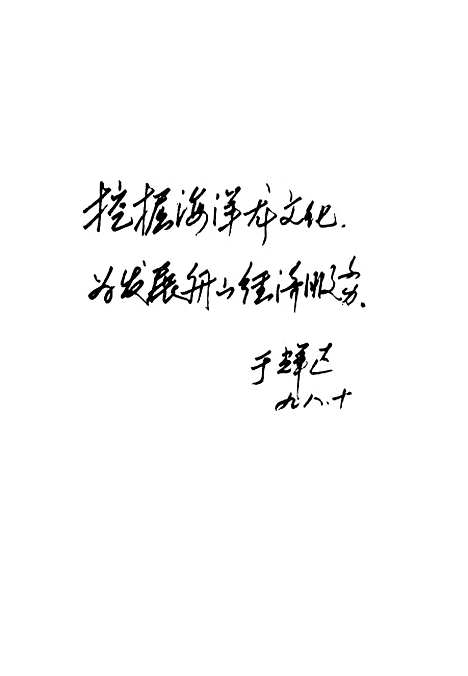 挖掘海洋龙文化.
为发展舟山经济服务.
于辉达
九八.十